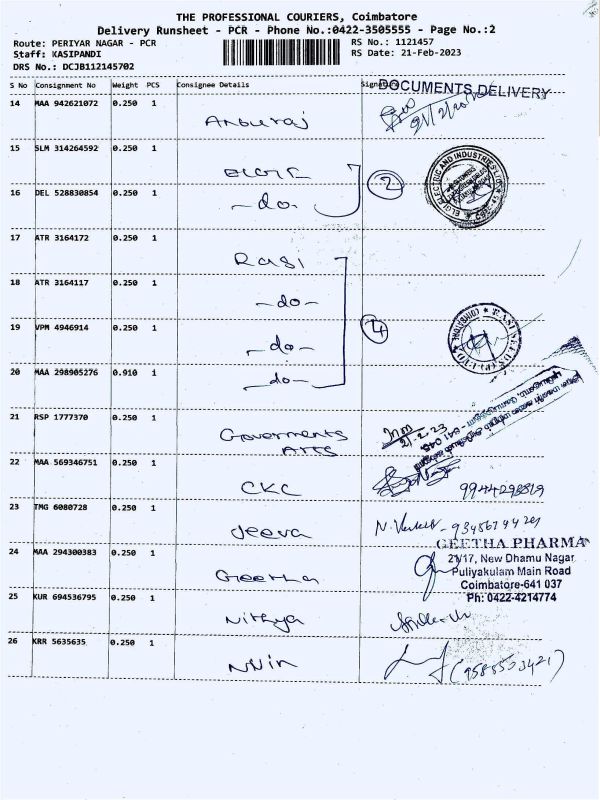 THE PROFESSIONAL COURIERS, Coimbatore
Delivery Runsheet - PCR - Phone No.:0422-3505555 - Page No.:2
Route: PERIYAR NAGAR - PCR
Staff: KASIPANDI
DRS No.: DCJB112145702
RS No.: 1121457
RS Date: 21-Feb-2023
S No Consignment No Weight PCS Consignee Details Sign
DOCUMENTS DELIVERY
14 MAA 942621072 0.250 1 Anburaj
15 SLM 314264592 0.250 1 ELGIE
16 DEL 528830854 0.250 1 -do-
2
17 ATR 3164172 0.250 1 Rasi
18 ATR 3164117 0.250 1 -do-
19 VPM 4946914 0.250 1 -do-
4
20 MAA 298905276 0.910 1 -do-
21 RSP 1777370 0.250 1 Goverments Arts
21-2-23
641 045
22 MAA 569346751 0.250 1 CKC
23 TMG 6080728 0.250 1 Jeeva
24 MAA 294300383 0.250 1 Geetha
GEETHA PHARMA
21/17, New Dhamu Nagar
Puliyakulam Main Road
Coimbatore-641 037
Ph: 0422-4214774
25 KUR 694536795 0.250 1 Nithya
26 KRR 5635635 0.250 1